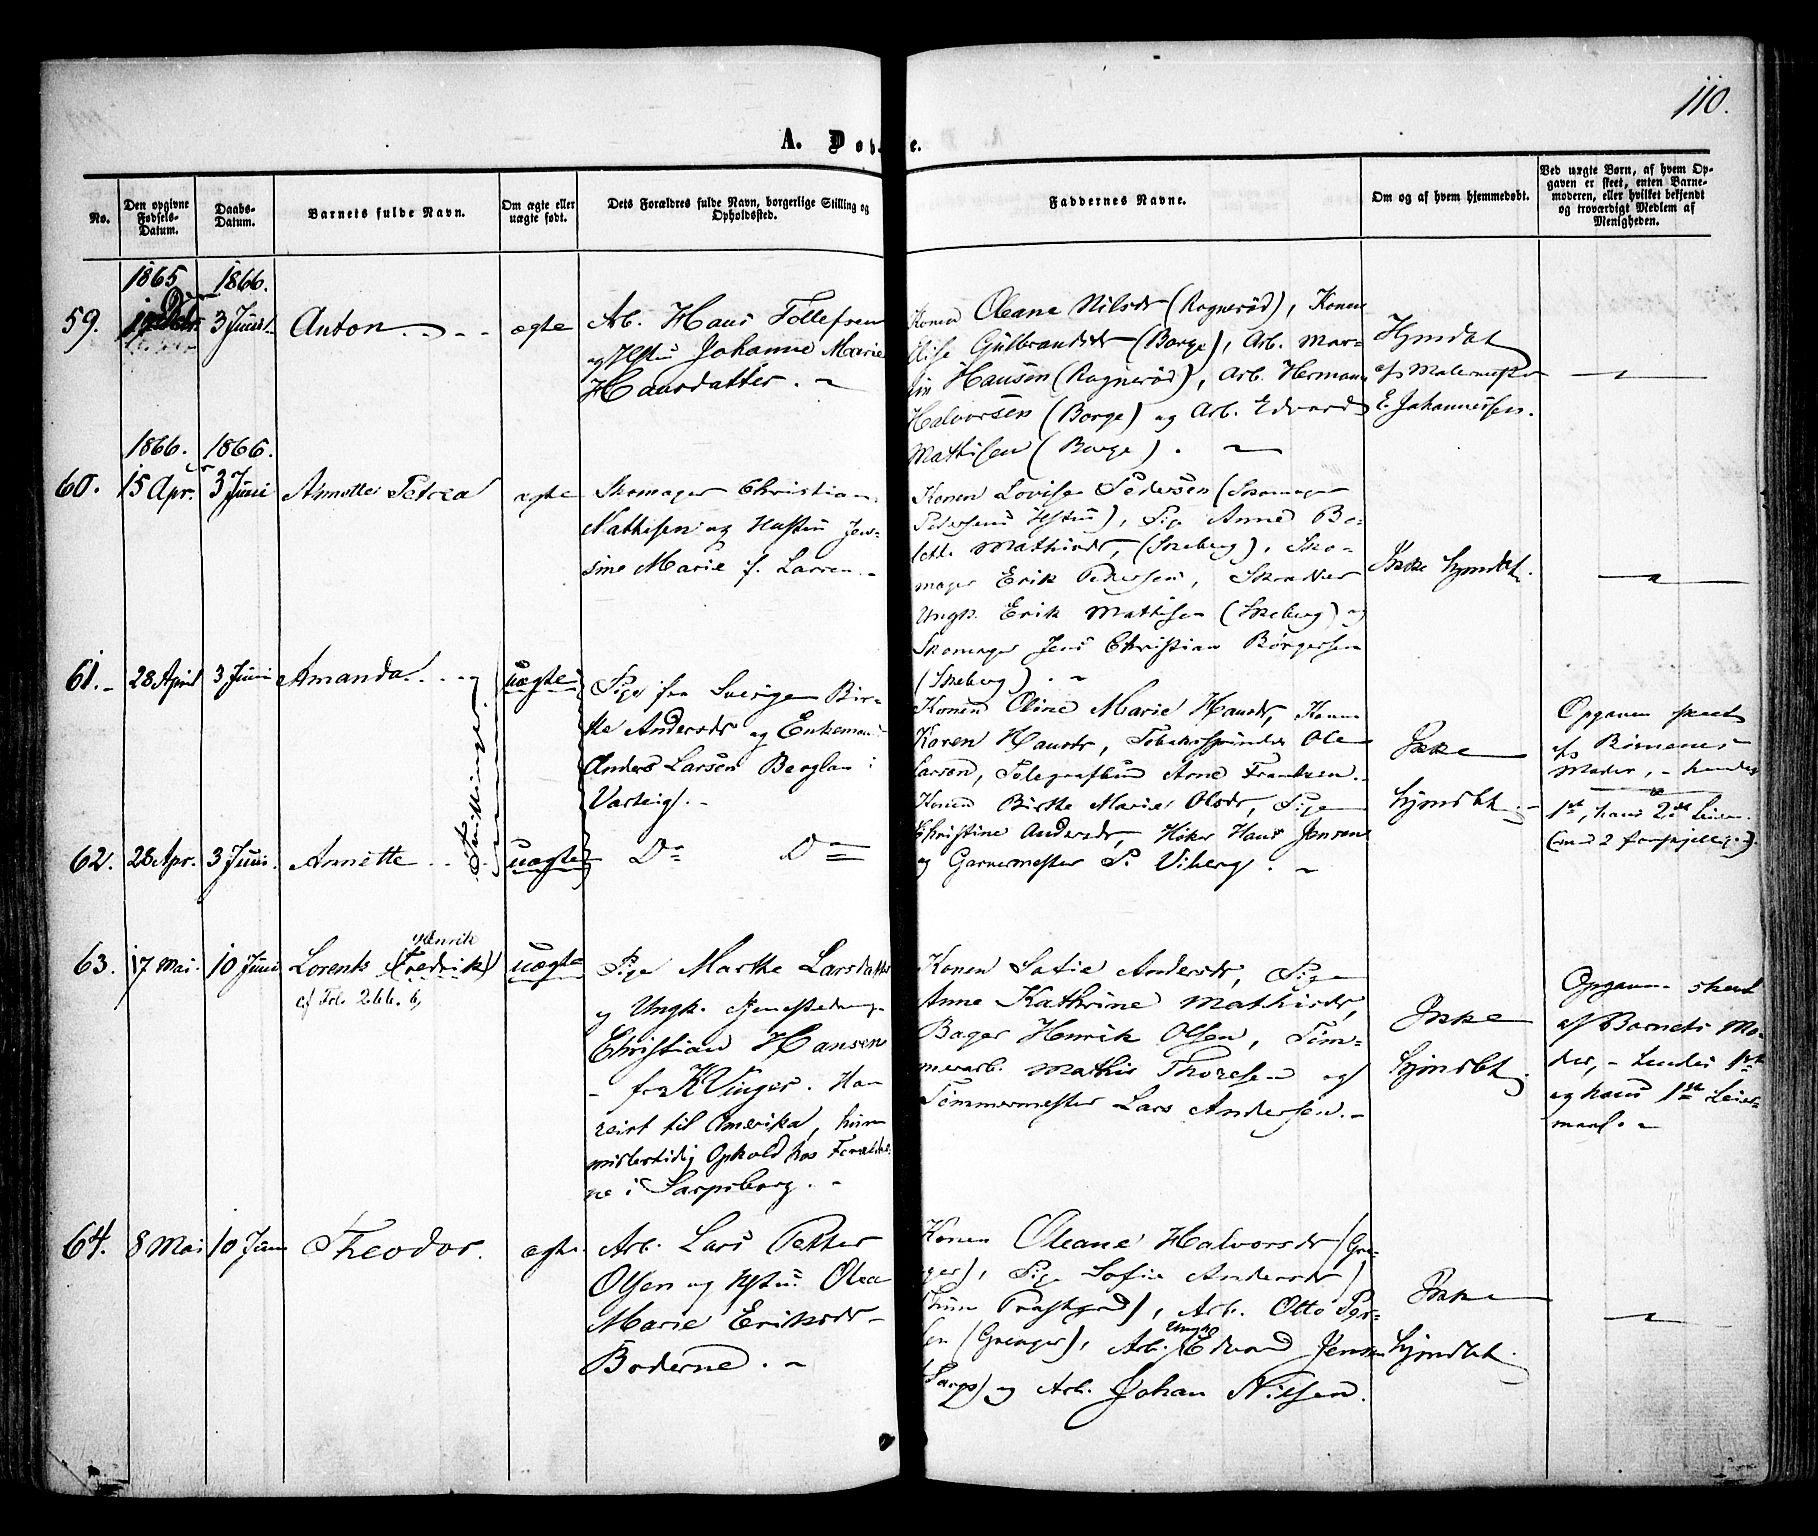 110.
A. Døbte.
No.
Den opgivne Fødsels-Datum.
Daabs-Datum.
Barnets fulde Navn.
Om ægte eller uægte født.
Dets Forældres fulde Navn, borgerlige Stilling og Opholdssted.
Faddernes Navne.
Om og af hvem hjemmedøbt.
Ved uægte Børn, af hvem Opgaven er skeet, enten Barnemoderen, eller hvilket bekjendt og troværdigt Medlem af Menigheden.
1865 1866.
59. 3 Juni Anton ægte
Arb. Hans Tollefsen
og Hstu Johanne Marie
Hansdatter.
Konen Oleane Nilsdr (Rognerød), Konen
Elise Gulbrandsdr (Borge), Arb. Mar-
tin Hansen (Rognerød), Arb. Herman
Halvorsen (Borge) og Arb. Edvard
Mathisen (Borge).
Hjmdøbt
af Malermester
E. Johannessen.
1866. 1866.
60. 15 Apr. 3 Juni Annette Petrea ægte
Skomager Christian
Mathisen og Hustru Jen-
sine Marie f. Larsen.
Konen Lovise Pedersen (Skomager
Pedersens Hstru), Pige Anne Bo-
lette Mathisdr, (Skeberg), Sko-
mager Erik Pedersen, Skrædder
Ungk. Erik Mathisen (Skeberg) og
Skomager Jens Christian Børgersen
(Skeberg).
Ikke hjmdøbt.
61. 28 April 3 Juni Amanda uægte
Tvillinger
Pige fra Sverige Bir-
the Andersdr og Enkemand
Anders Larsen Berglan i
Varteig.
Konen Oline Marie Hansdr, Konen
Karen Hansdr, Tobaksspinder Ole
Larsen, Telegrafbud Arne Frantzen.
Ikke
hjmdøbt.
Opgaven skeet
af Børnenes
Moder, - hendes
1st, hans 2det Leier.
(med 2 forskjellige).
62. 28 Apr. 3 Juni Annette uægte
Do Do
Konen Birthe Marie Olsdr, Pige
Christine Andersdr, Høker Hans Jensen
og Garvermester P. Viberg.
63. 17 Mai. 10 Juni Lorents (Fredrik) uægte
Henrik
cf Fol. 266. 6,
Pige Marthe Larsdatter
og Ungk.
Christian Hansen
fra Kvinger. Han
reist til Amerika, hun
midlertidig Ophold hos Foræld-
ne i Sarpsborg.
Konen Sofie Andersdr, Pige
Anne Kathrine Mathisdr,
Bager Henrik Olsen, Tøm-
merarb. Mathis Thoresen og
Tømmermester Lars Andersen.
Ikke
hjmdøbt
Opgaven skeet
af Barnets Mo-
der, - hendes 1st
og hans 1ste Leier-
maal.
64. 8 Mai 10 Juni Theodor. ægte
Arb. Lars Petter
Olsen og Hstru Olea
Marie Eriksdr
Boderne.
Konen Oleane Halvorsdr (Gre-
ger), Pige Sofie Andersdr
(Tune Præstgrd), Arb. Otto Peter-
sen (Grenger), Arb. Ungk. Edvard Jensen
(Sarps) og Arb. Johan Nilsen.
Ikke
hjmdøbt.